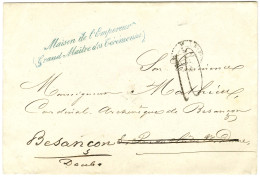 Maison de l'Empereur
Grand Maître des Cérémonies
Son Eminence
Monseigneur Mathieu
Cardinal Archevêque de Besançon
Besançon
Doubs